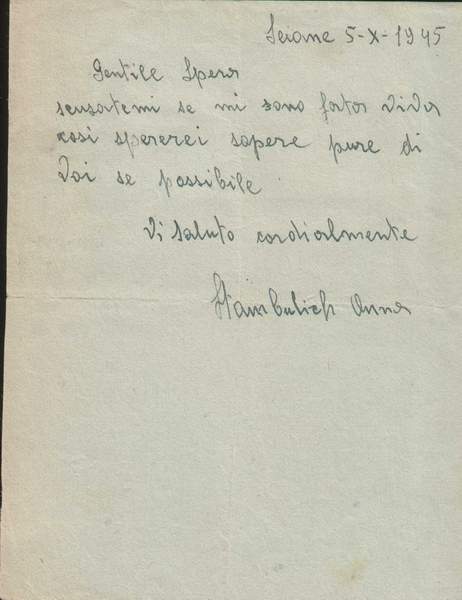 Seiane 5-X-1945
Gentile Spera
scusatemi se mi sono fatta viva
così spererei sapere pure di
Voi se possibile
Vi saluto cordialmente
Stambulich Anna